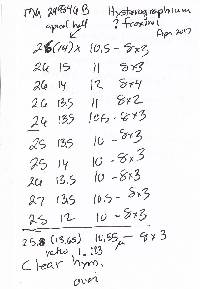 Hysterographium
apical half ? Fraxini
Apr 2017
25 (14) x 10,5 - 8x3
26 15 11 8x3
26 14 12 8x4
26 13,5 11 8x2
26 13,5 10,5 - 8x3
25 13,5 10 - 8x3
25 14 10 - 8x3
26 13,5 10 - 8x3
27 13,5 10,5 - 8x3
25 12 10 - 8x3
25.8 (13,65) 10,55 - 8x3
ratio 1.
Clear hym.